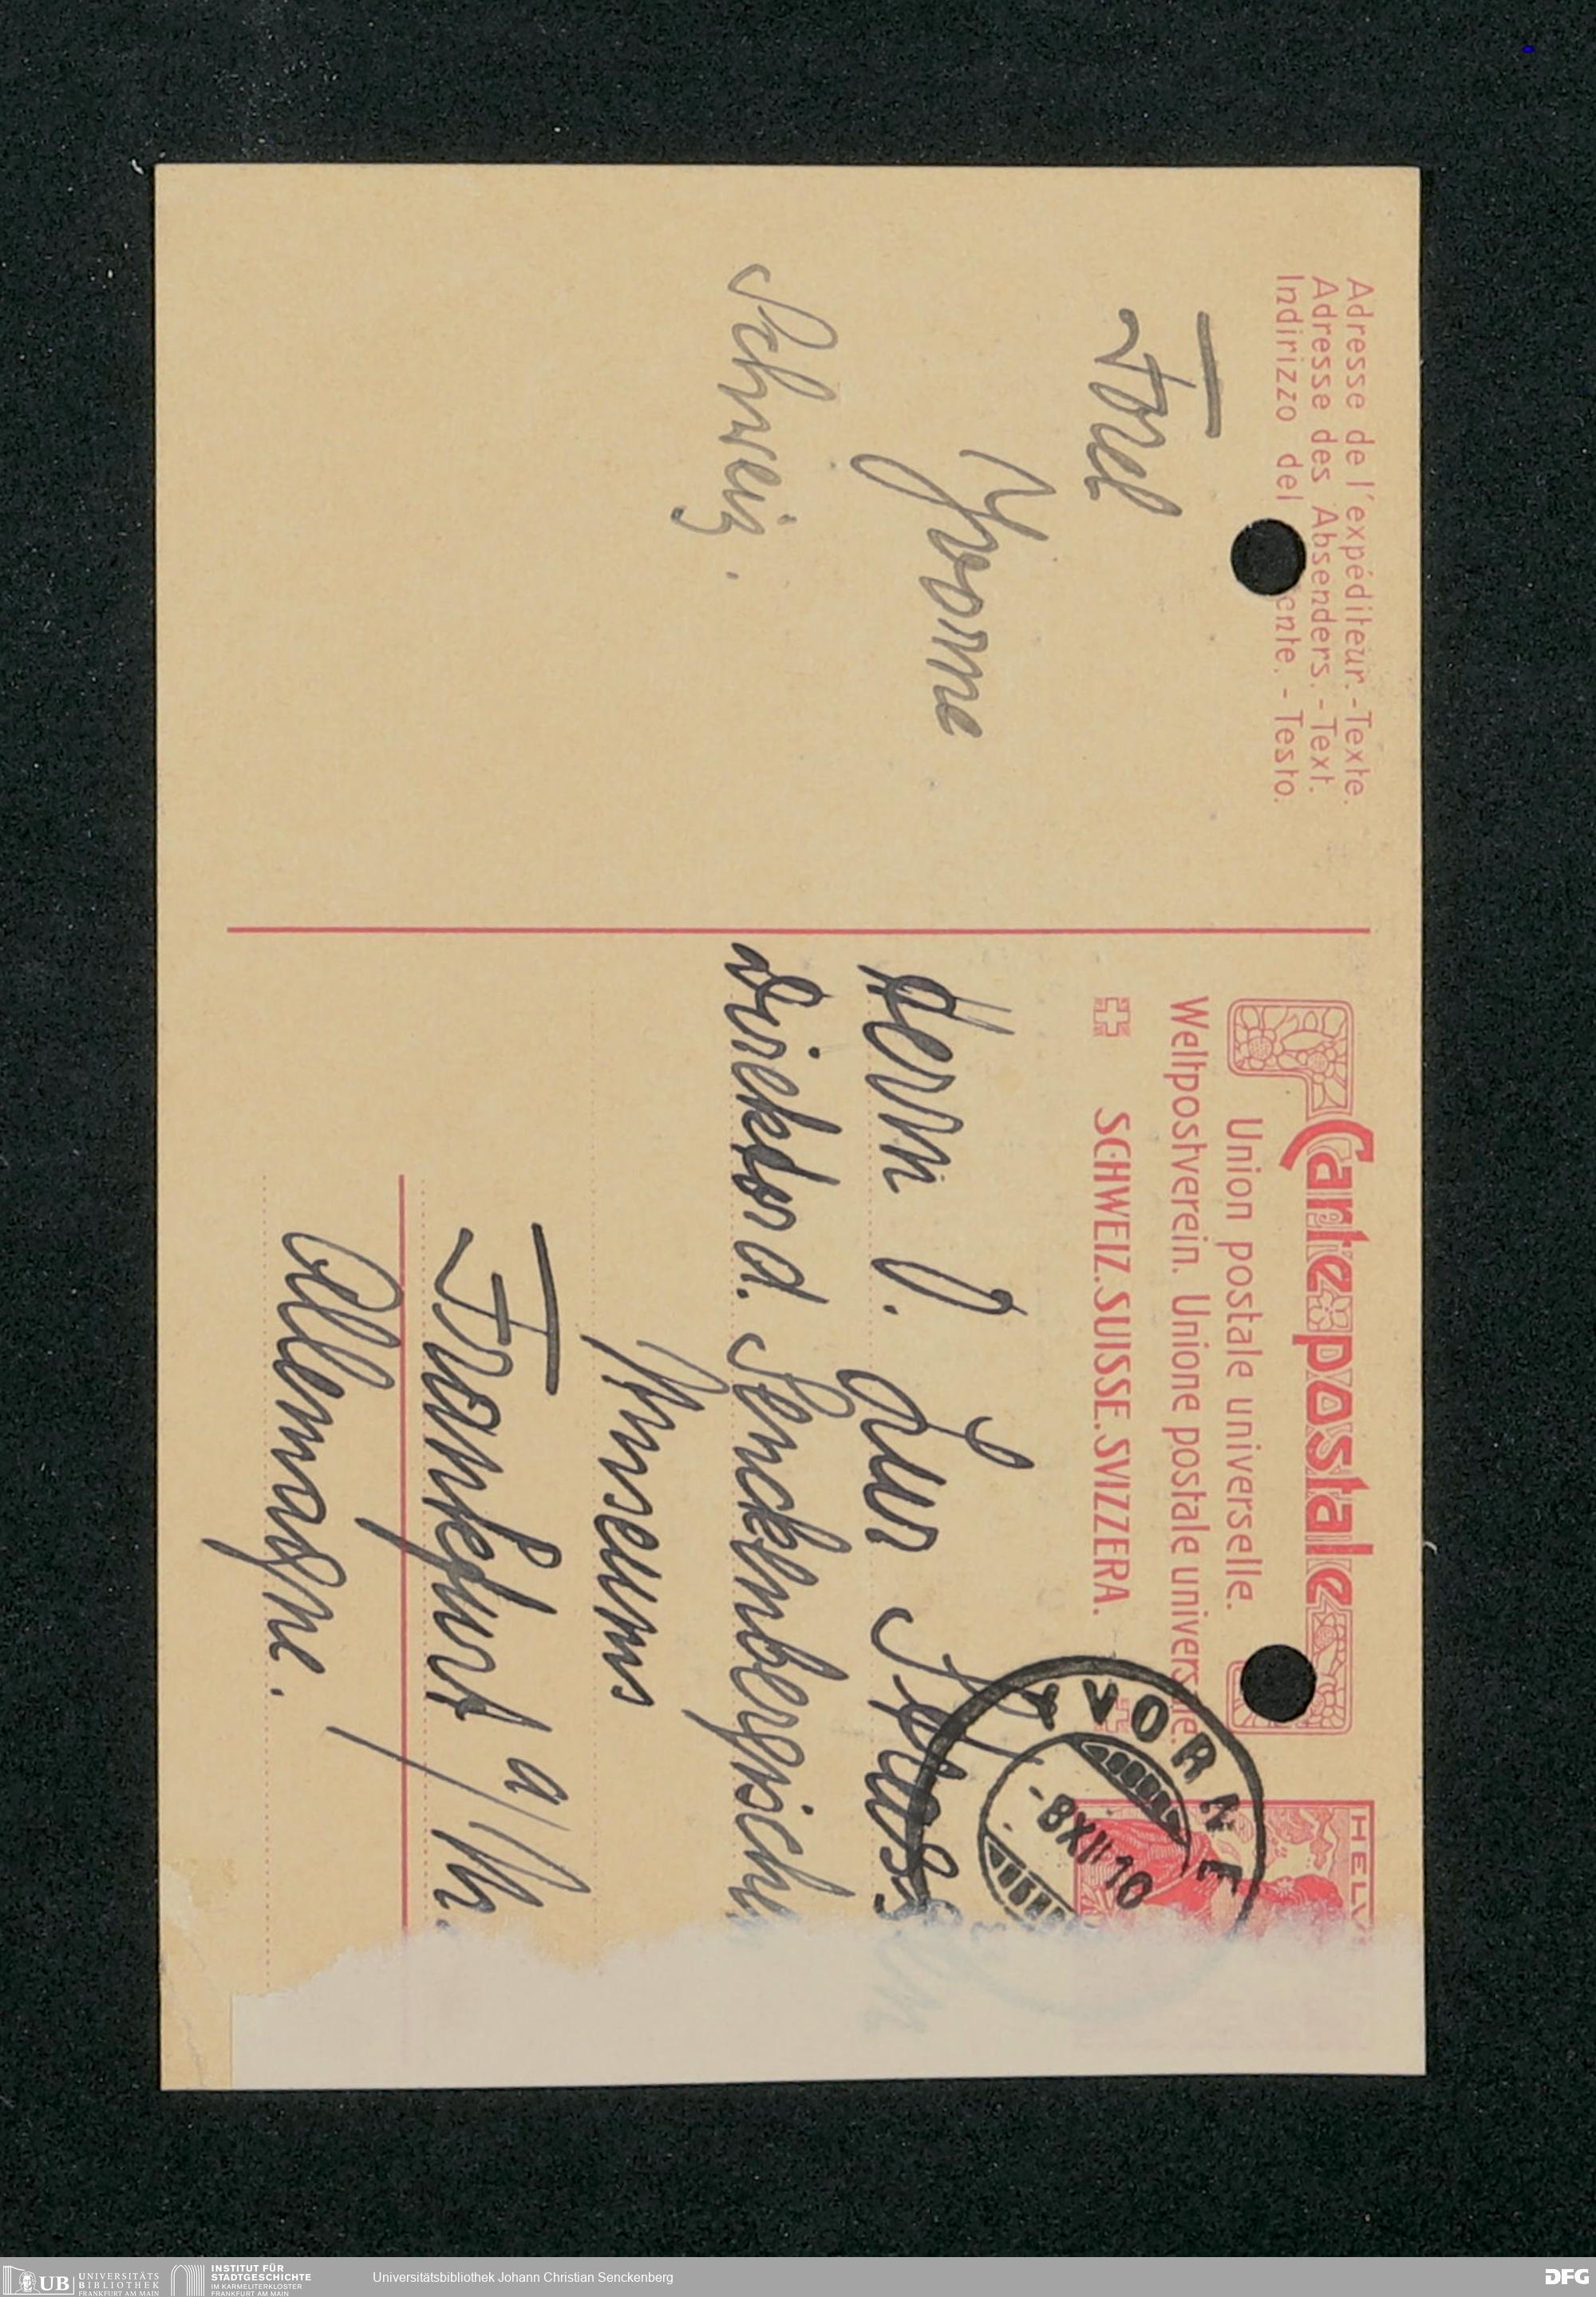 Adresse de l'expéditeur. - Texte.
Adresse des Absenders. - Text.
Indirizzo del cnte. - Testo.
Forel
Yvorne
Schweiz.
Carte postale
Union postale universelle.
Weltpostverein. Unione postale universale.
SCHWEIZ. SUISSE. SVIZZERA.
HELV
YVORNE
-8 XII 10
Herrn D. zur Strassen
Direktor d. Senckenbergisch
Museums
Frankfurt a/M.
Allemagne.
UB
UNIVERSITÄTS
BIBLIOTHEK
FRANKFURT AM MAIN
INSTITUT FÜR
STADTGESCHICHTE
IM KARMELITERKLOSTER
FRANKFURT AM MAIN
Universitätsbibliothek Johann Christian Senckenberg
DFG